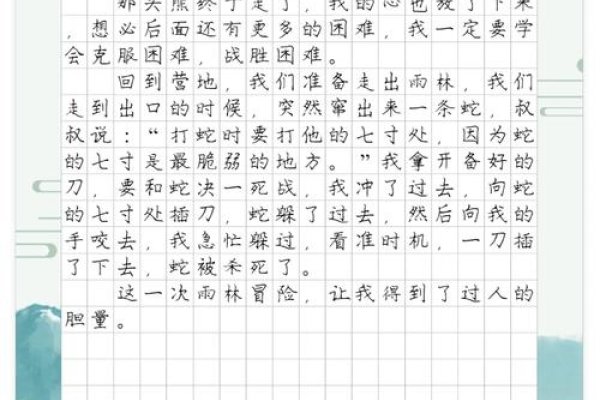 那头熊终于走了，我的心也放了下来
，想必后面还有更多的困难，我一定要学
会克服困难，战胜困难。
回到营地，我们准备走出雨林，我们
走到出口的时候，突然窜出来一条蛇，叔
叔说：“打蛇时要打他的七寸处，因为蛇
的七寸是最脆弱的地方。”我拿开备好的
刀，要和蛇决一死战，我冲了过去，向蛇
的七寸处插刀，蛇躲了过去，然后向我的
手咬去，我急忙躲过，看准时机，一刀插
了下去，蛇被杀死了。
这一次雨林冒险，让我得到了过人的
胆量。